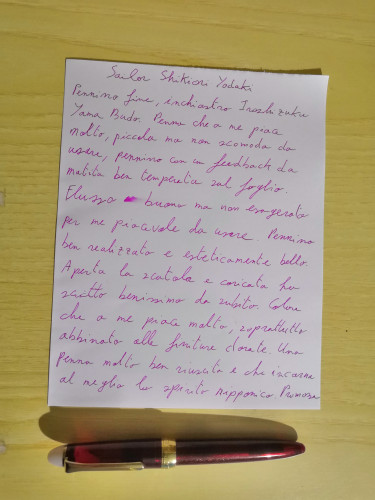 Sailor Shikiori Yodaka
Pennino fine, inchiostro Iroshizuku
Yama Budo. Penna che a me piace
molto, piccola ma non scomoda da
usare, pennino con un feedback da
matita ben temperata sul foglio.
Flusso buono ma non esagerato
per me piacevole da usare. Pennino
ben realizzato e esteticamente bello
Aperta la scatola e caricata ha
scritto benissimo da subito. Colore
che a me piace molto, soprattutto
abbinato alle finiture dorate. Una
penna molto ben riuscita e che incarna
al meglio lo spirito nipponico. Promossa